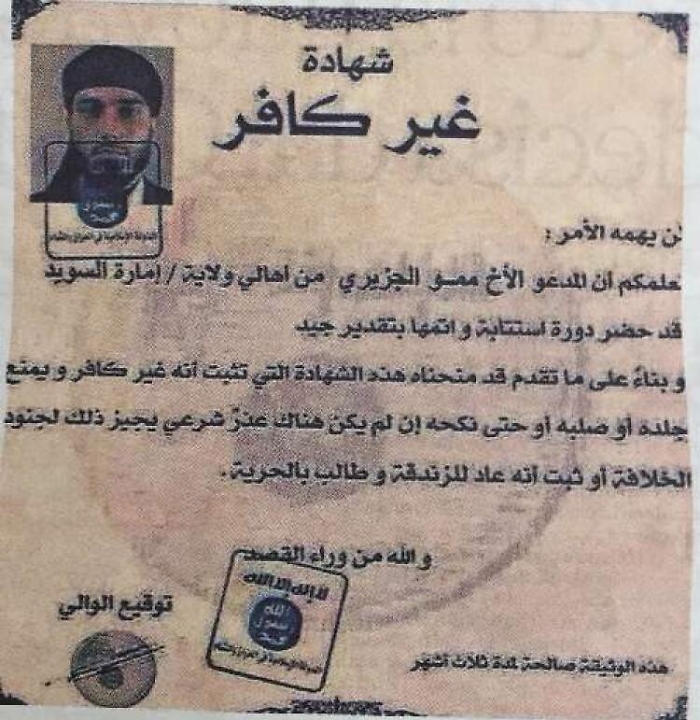 شهادة
غير كافر
لن يهمه الأمر :
نعلمكم أن المدعو الأخ ممو الجزيري من اهالي ولاية / إمارة السويد
قد حضر دورة استتابة و اتمها بتقدير جيد
و بناءً على ما تقدم قد منحناه هذه الشهادة التي تثبت أنه غير كافر و يمنع
جلده أو صلبه أو حتى نكحه إن لم يكن هناك عذرٌ شرعي يجيز ذلك لجنود
الخلافة أو ثبت أنه عاد للزندقة و طالب بالحرية .
و الله من وراء القصد
توقيع الوالي
لا إله إلا الله
الله
رسول
محمد
هذه الوثيقة صالحة لمدة ثلاث أشهر